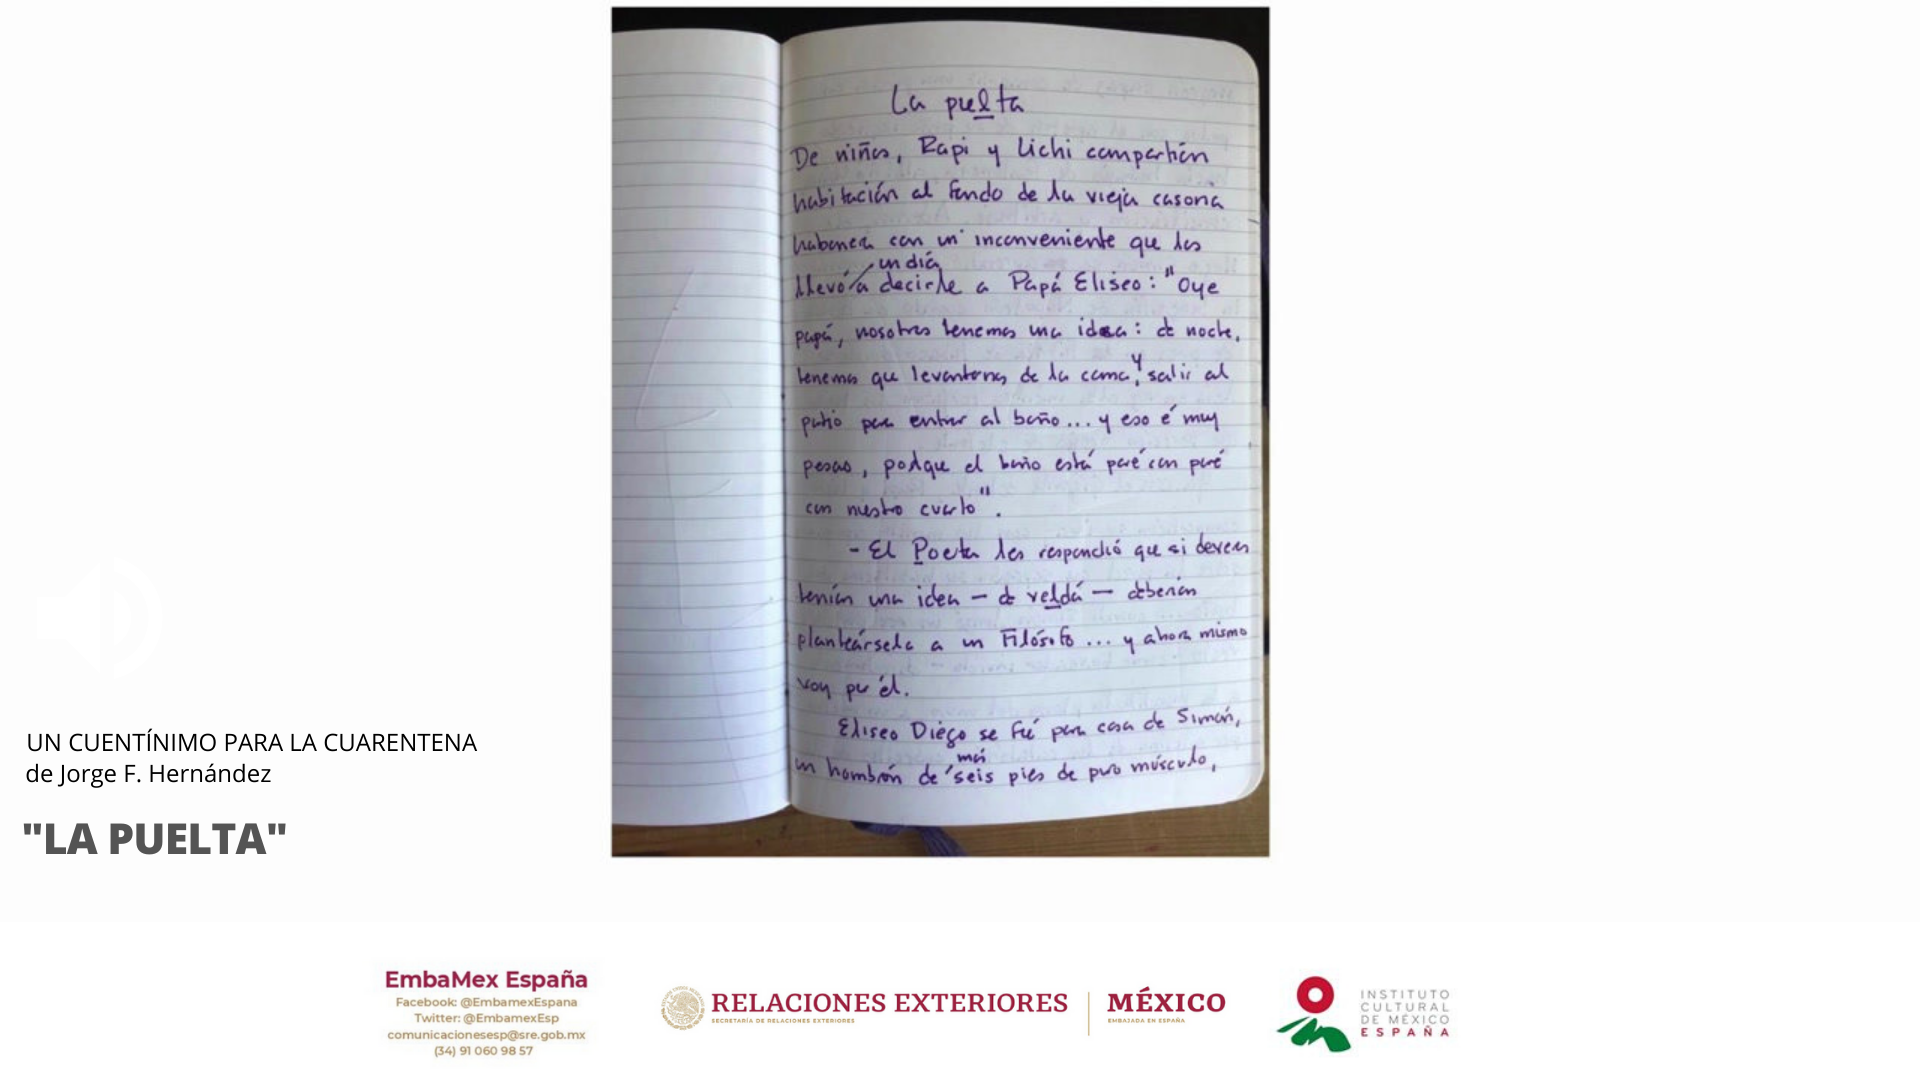 La puelta
De niños, Rapi y Lichi compartían
habitación al fondo de la vieja casona
habanera con un inconveniente que los
un día
llevó a decirle a Papá Eliseo: "Oye
papá, nosotros tenemos una idea: de noche,
tenemos que levantarnos de la cama, y salir al
patio para entrar al baño... y eso é muy
pesao, podque el baño está paré con paré
con nuestro cuarto".
- El Poeta les respondió que si deveras
tenían una idea — de veldá — deberían
planteársela a un Filósofo... y ahora mismo
voy por él.
Eliseo Diego se fué para casa de Simón,
más
un hombrón de seis pies de puro músculo,
UN CUENTÍNIMO PARA LA CUARENTENA
de Jorge F. Hernández
"LA PUELTA"
EmbaMex España
Facebook: @EmbamexEspana
Twitter: @EmbamexEsp
comunicacionesesp@sre.gob.mx
(34) 91 060 98 57
RELACIONES EXTERIORES
SECRETARÍA DE RELACIONES EXTERIORES
MÉXICO
EMBAJADA EN ESPAÑA
INSTITUTO
CULTURAL
DE MÉXICO
ESPAÑA